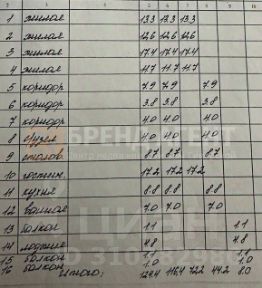 1 жилая 13.3 13.3 13.3
2 жилая 12.6 12.6 12.6
3 жилая 17.4 17.4 17.4
4 жилая 11.7 11.7 11.7
5 коридор 7.9 7.9 7.9
6 коридор 3.8 3.8 3.8
7 коридор 4.0 4.0 4.0
8 4.0 4.0 4.0
9 столов. 8.7 8.7 8.7
10 гостин. 17.2 17.2 17.2
11 кухня 8.8 8.8 8.8
12 ванная 7.0 7.0 7.0
13 балкон 1.1 1.1
14 лоджия 4.8 4.8
15 балкон 1.1
16 балкон 1.0 1.0
Итого: 116.4 72.2 44.2 8.0